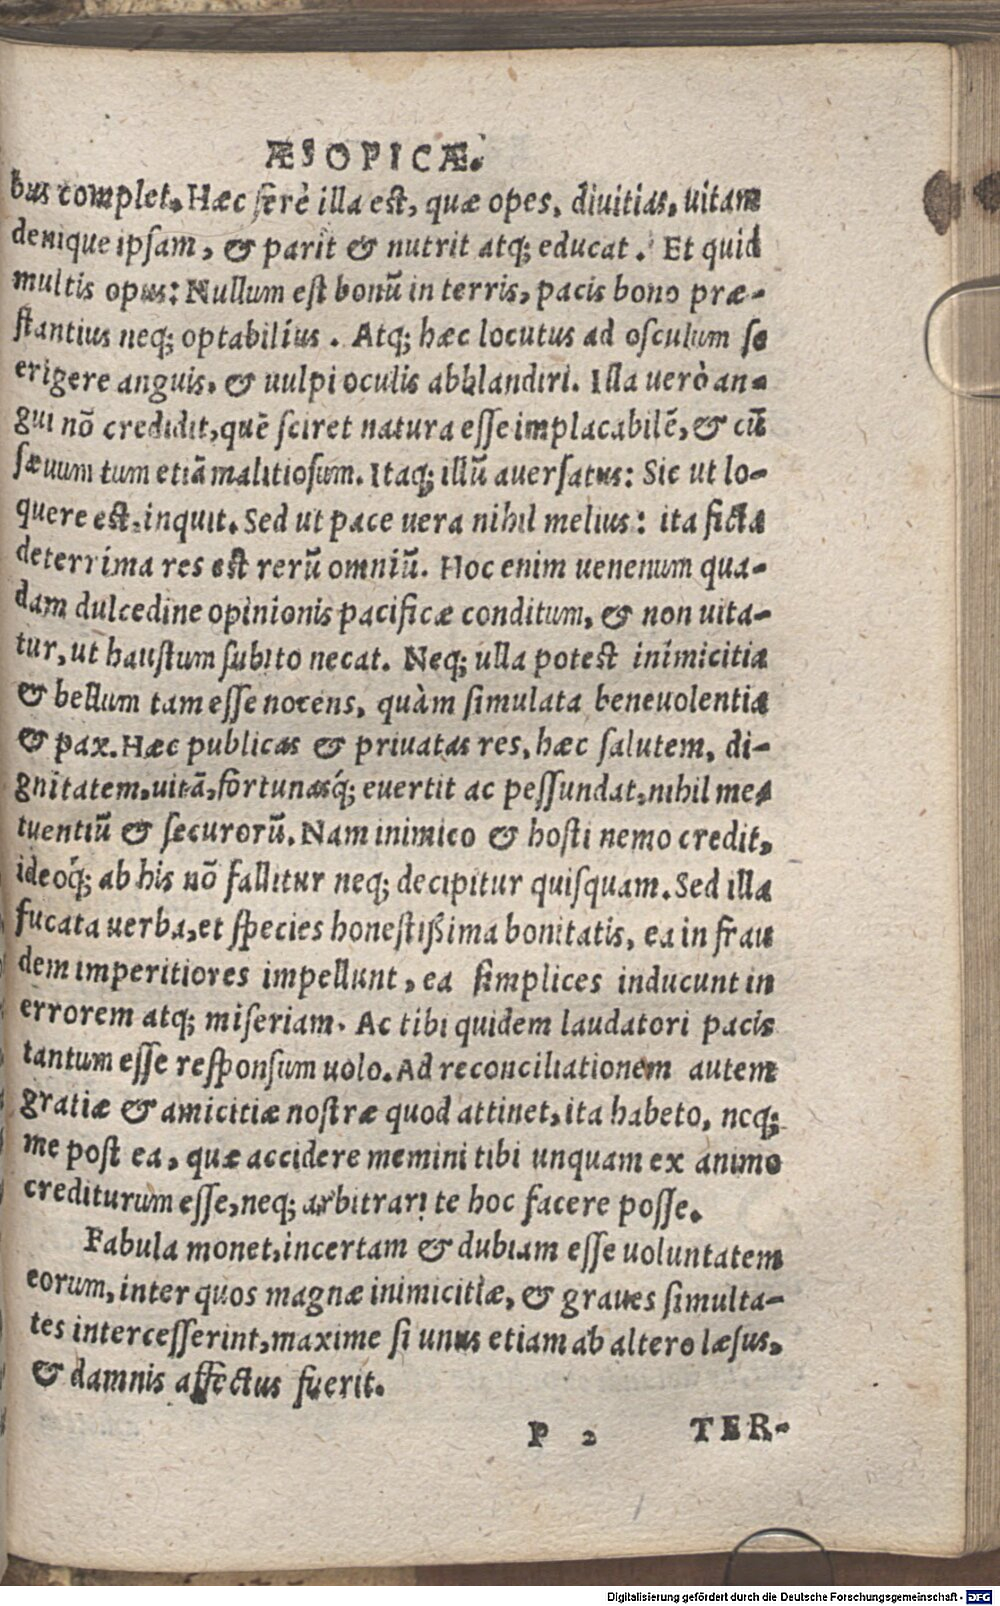 ÆSOPICÆ.
bus complet. Hæc ferè illa est, quæ opes, diuitias, uitam
denique ipsam, & parit & nutrit atq; educat. Et quid
multis opus: Nullum est bonũ in terris, pacis bono præ-
stantius neq; optabilius. Atq; hæc locutus ad osculum se
erigere anguis, & uulpi oculis abblandiri. Illa uerò an-
gui nõ credidit, quẽ sciret natura esse implacabilẽ, & cũ
sæuum tum etiã malitiosum. Itaq; illũ auersatus: Sic ut lo-
quere est, inquit. Sed ut pace uera nihil melius: ita ficta
deterrima res est rerũ omniũ. Hoc enim uenenum qua-
dam dulcedine opinionis pacificæ conditum, & non uita-
tur, ut haustum subito necat. Neq; ulla potest inimicitia
& bellum tam esse nocens, quàm simulata beneuolentia
& pax. Hæc publicas & priuatas res, hæc salutem, di-
gnitatem, uitã, fortunasq́; euertit ac pessundat, nihil me-
tuentiũ & securorũ. Nam inimico & hosti nemo credit,
ideoq́; ab his nõ fallitur neq; decipitur quisquam. Sed illa
fucata uerba, et species honestißima bonitatis, ea in frau
dem imperitiores impellunt, ea simplices inducunt in
errorem atq; miseriam. Ac tibi quidem laudatori pacis
tantum esse responsum uolo. Ad reconciliationem autem
gratiæ & amicitiæ nostræ quod attinet, ita habeto, neq;
me post ea, quæ accidere memini tibi unquam ex animo
crediturum esse, neq; arbitrari te hoc facere posse.
Fabula monet, incertam & dubiam esse uoluntatem
eorum, inter quos magnæ inimicitiæ, & graues simulta-
tes intercesserint, maxime si unus etiam ab altero læsus,
& damnis affectus fuerit.
P 2 TER-
Digitalisierung gefördert durch die Deutsche Forschungsgemeinschaft - DFG